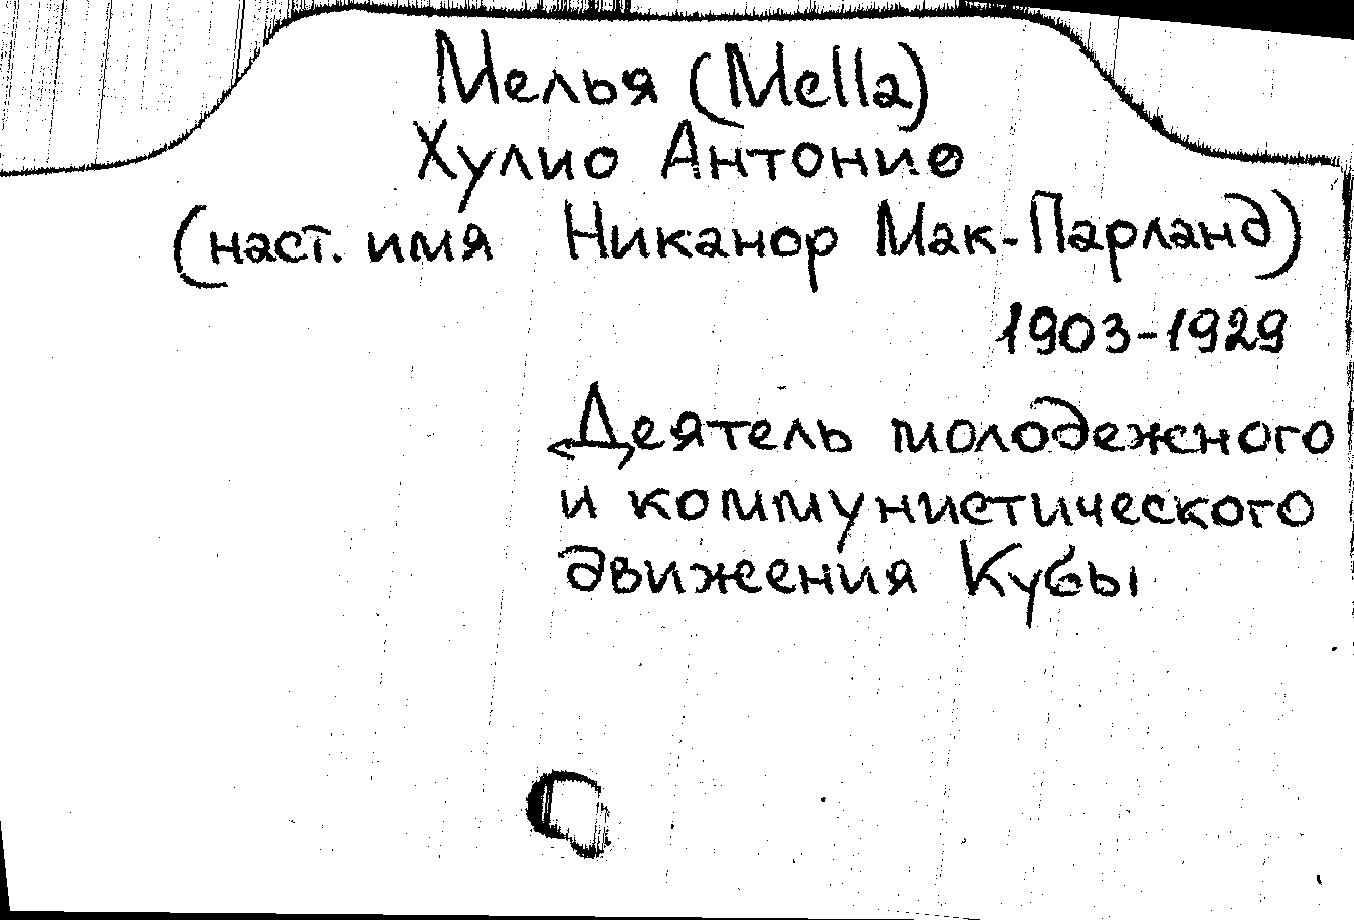 Мелья (Mella)
Хулио Антонио
(наст. имя Никанор Мак-Парланд)
1903-1929
Деятель молодежного
и коммунистического
движения Кубы